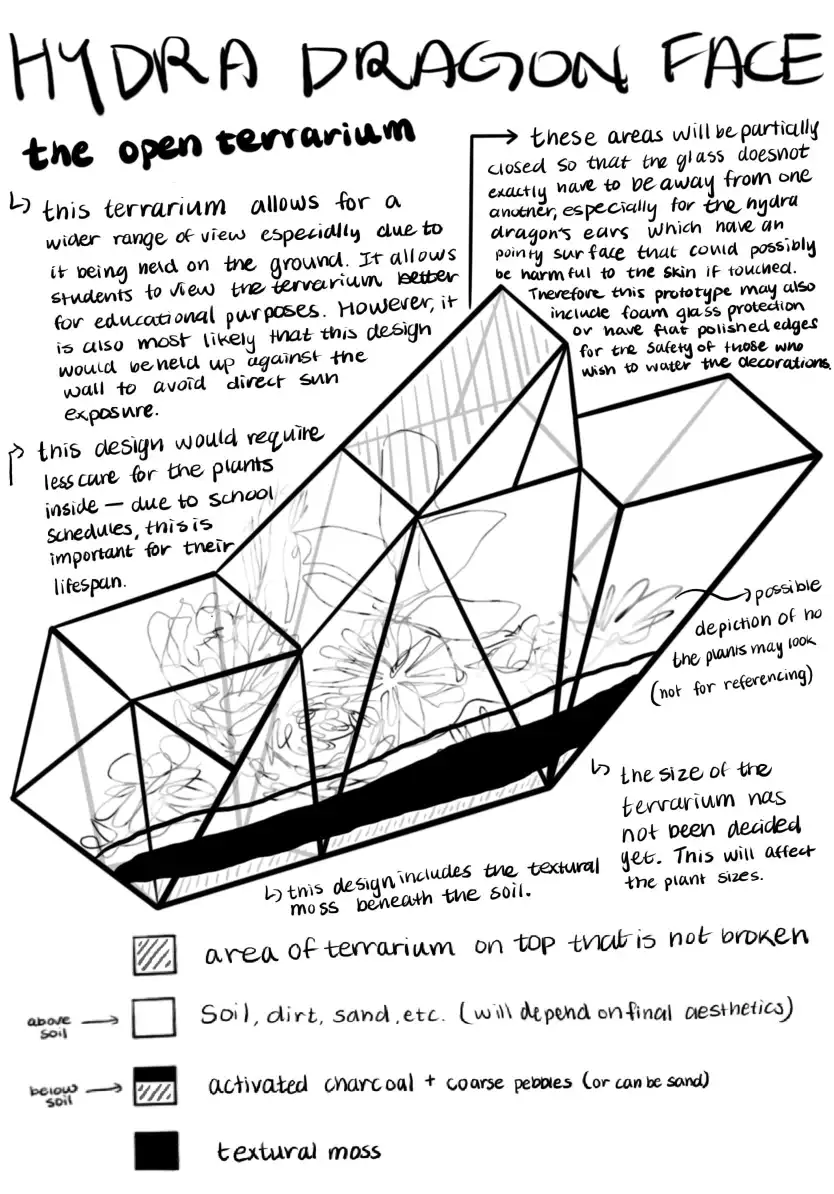 HYDRA DRAGON FACE
the open terrarium
↳ this terrarium allows for a
wider range of view especially due to
it being held on the ground. It allows
students to view the terrarium better
for educational purposes. However, it
is also most likely that this design
would be held up against the
wall to avoid direct sun
exposure.
→ these areas will be partially
closed so that the glass doesnot
exactly have to be away from one
another, especially for the hydra
dragon's ears which have an
pointy surface that could possibly
be harmful to the skin if touched.
Therefore this prototype may also
include foam glass protection
or have flat polished edges
for the safety of those who
wish to water the decorations.
→ this design would require
less care for the plants
inside — due to school
schedules, this is
important for their
lifespan.
→ possible
depiction of ho
the plants may look
(not for referencing)
↳ the size of the
terrarium has
not been decided
yet. This will affect
the plant sizes.
↳ this design includes the textural
moss beneath the soil.
area of terrarium on top that is not broken
above
soil →
soil, dirt, sand, etc. (will depend on final aesthetics)
below
soil →
activated charcoal + coarse pebbles (or can be sand)
textural moss